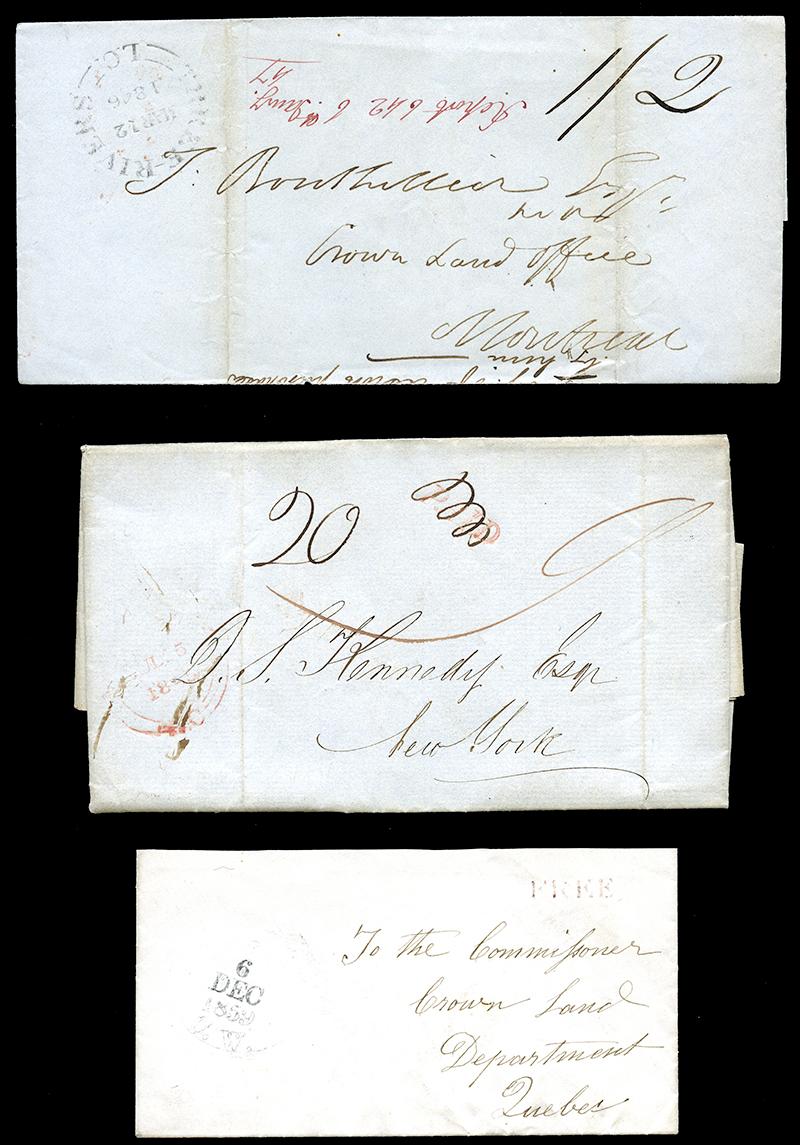 THREE-RIVERS
MAR 12
1846
L.C.
1/2
Report 642 6 Aug:
47
T. Bouthillier Esqr.
Crown Land Office
Montreal
20
D. S. Kennedy Esqr
New York
FREE
6
DEC
1859
To the Commissoner
Crown Land
Department
Quebec